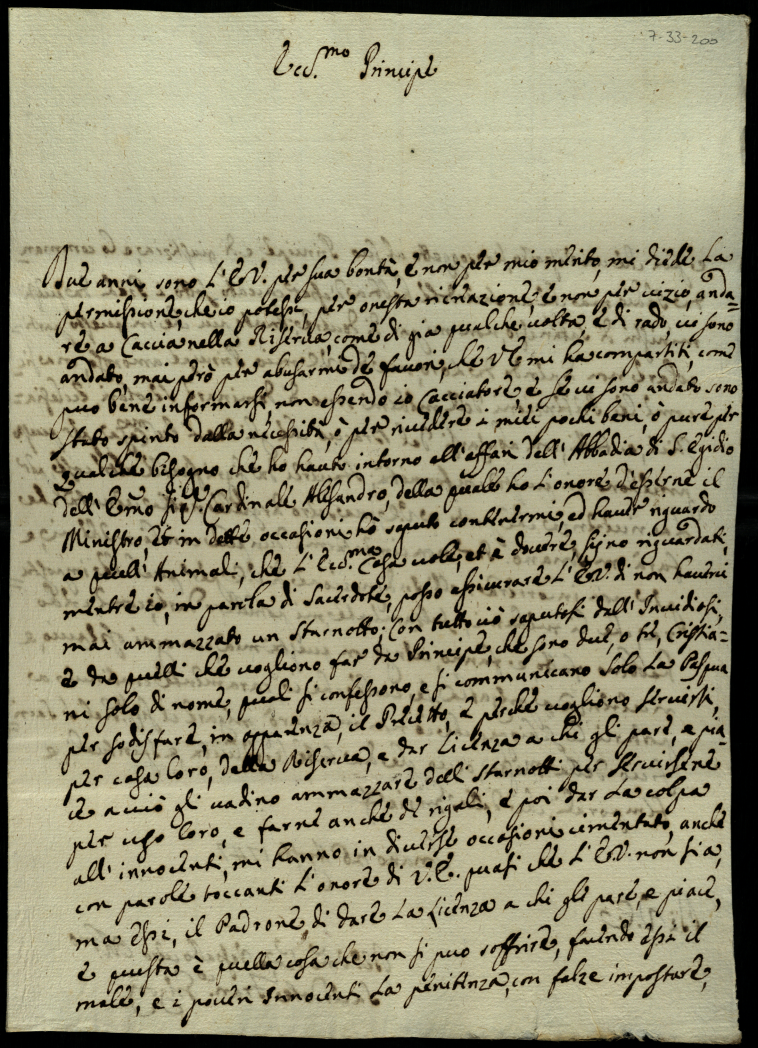 7-33-200
Ecc.mo Principe
Due anni sono L'E.V. per sua bontà, e non per mio merito, mi diede La
permissione, che io potessi, per onesta ricreazione, e non per vizio, anda=
re a Caccia nella Riserva, come di già qualche volta, e di rado, vi sono
andato, mai però per abusarmi de favori, che V.E. mi ha compartiti, come
puo bene informarsi, non essendo io Cacciatore, e se vi sono andato sono
stato spinto dalla necessità, ò per rivedere i miei pochi beni, ò pure per
qualche bisogno che ho hauto intorno all'affari dell'Abbadia di S. Egidio
dell'Em̃o Sig.r Cardinale Alesandro, della quale ho l'onore d'esserne il
Ministro, et in dette occasioni hò saputo contenermi, ed havere riguardo
a quelli Animali, che L'Ecc.ma Casa vole, et è dovere, sijno riguardati,
mentre io, in parola di Sacerdote, posso assicurare L'E.V. di non haverci
mai ammazzato un Starnotto; Con tutto ciò saputosi dall'Invidiosi,
e da quelli che vogliono far da Principe, che sono due, o tre, Cristia=
ni solo di nome, quali si confessono, e si communicano Solo La Pasqua
per sodisfare, in apparenza, il Precetto, e perche vogliono servirsi,
per cosa loro, della Riserva, e dar Licenza a chi gli pare, e pia=
ce acciò gli vadino ammazzare delli Starnotti per servirsene
per uso loro, e farne anche de rigali, e poi dar La colpa
all'innocenti, mi hanno in diverse occasioni cimentato, anche
con parole toccanti L'onore di V.E. quasi che L'E.V. non sia,
ma essi, il Padrone di dare La Licenza a chi gli pare, e piace,
e questa è quella cosa che non si puo soffrire, facendo essi il
male, e i poveri Innocenti La penitenza, con falze imposture,